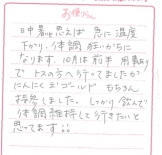 お便りから
日中暑いと思えば 急に温度
下がり、体調 狂いがちに
なります。10月は前半 用事が
で トスのろへ行ってましたが
にんにく玉ゴールド もちろん
接参しました。しっかり飲んで
体調維持して行きたいと
思ってます!!